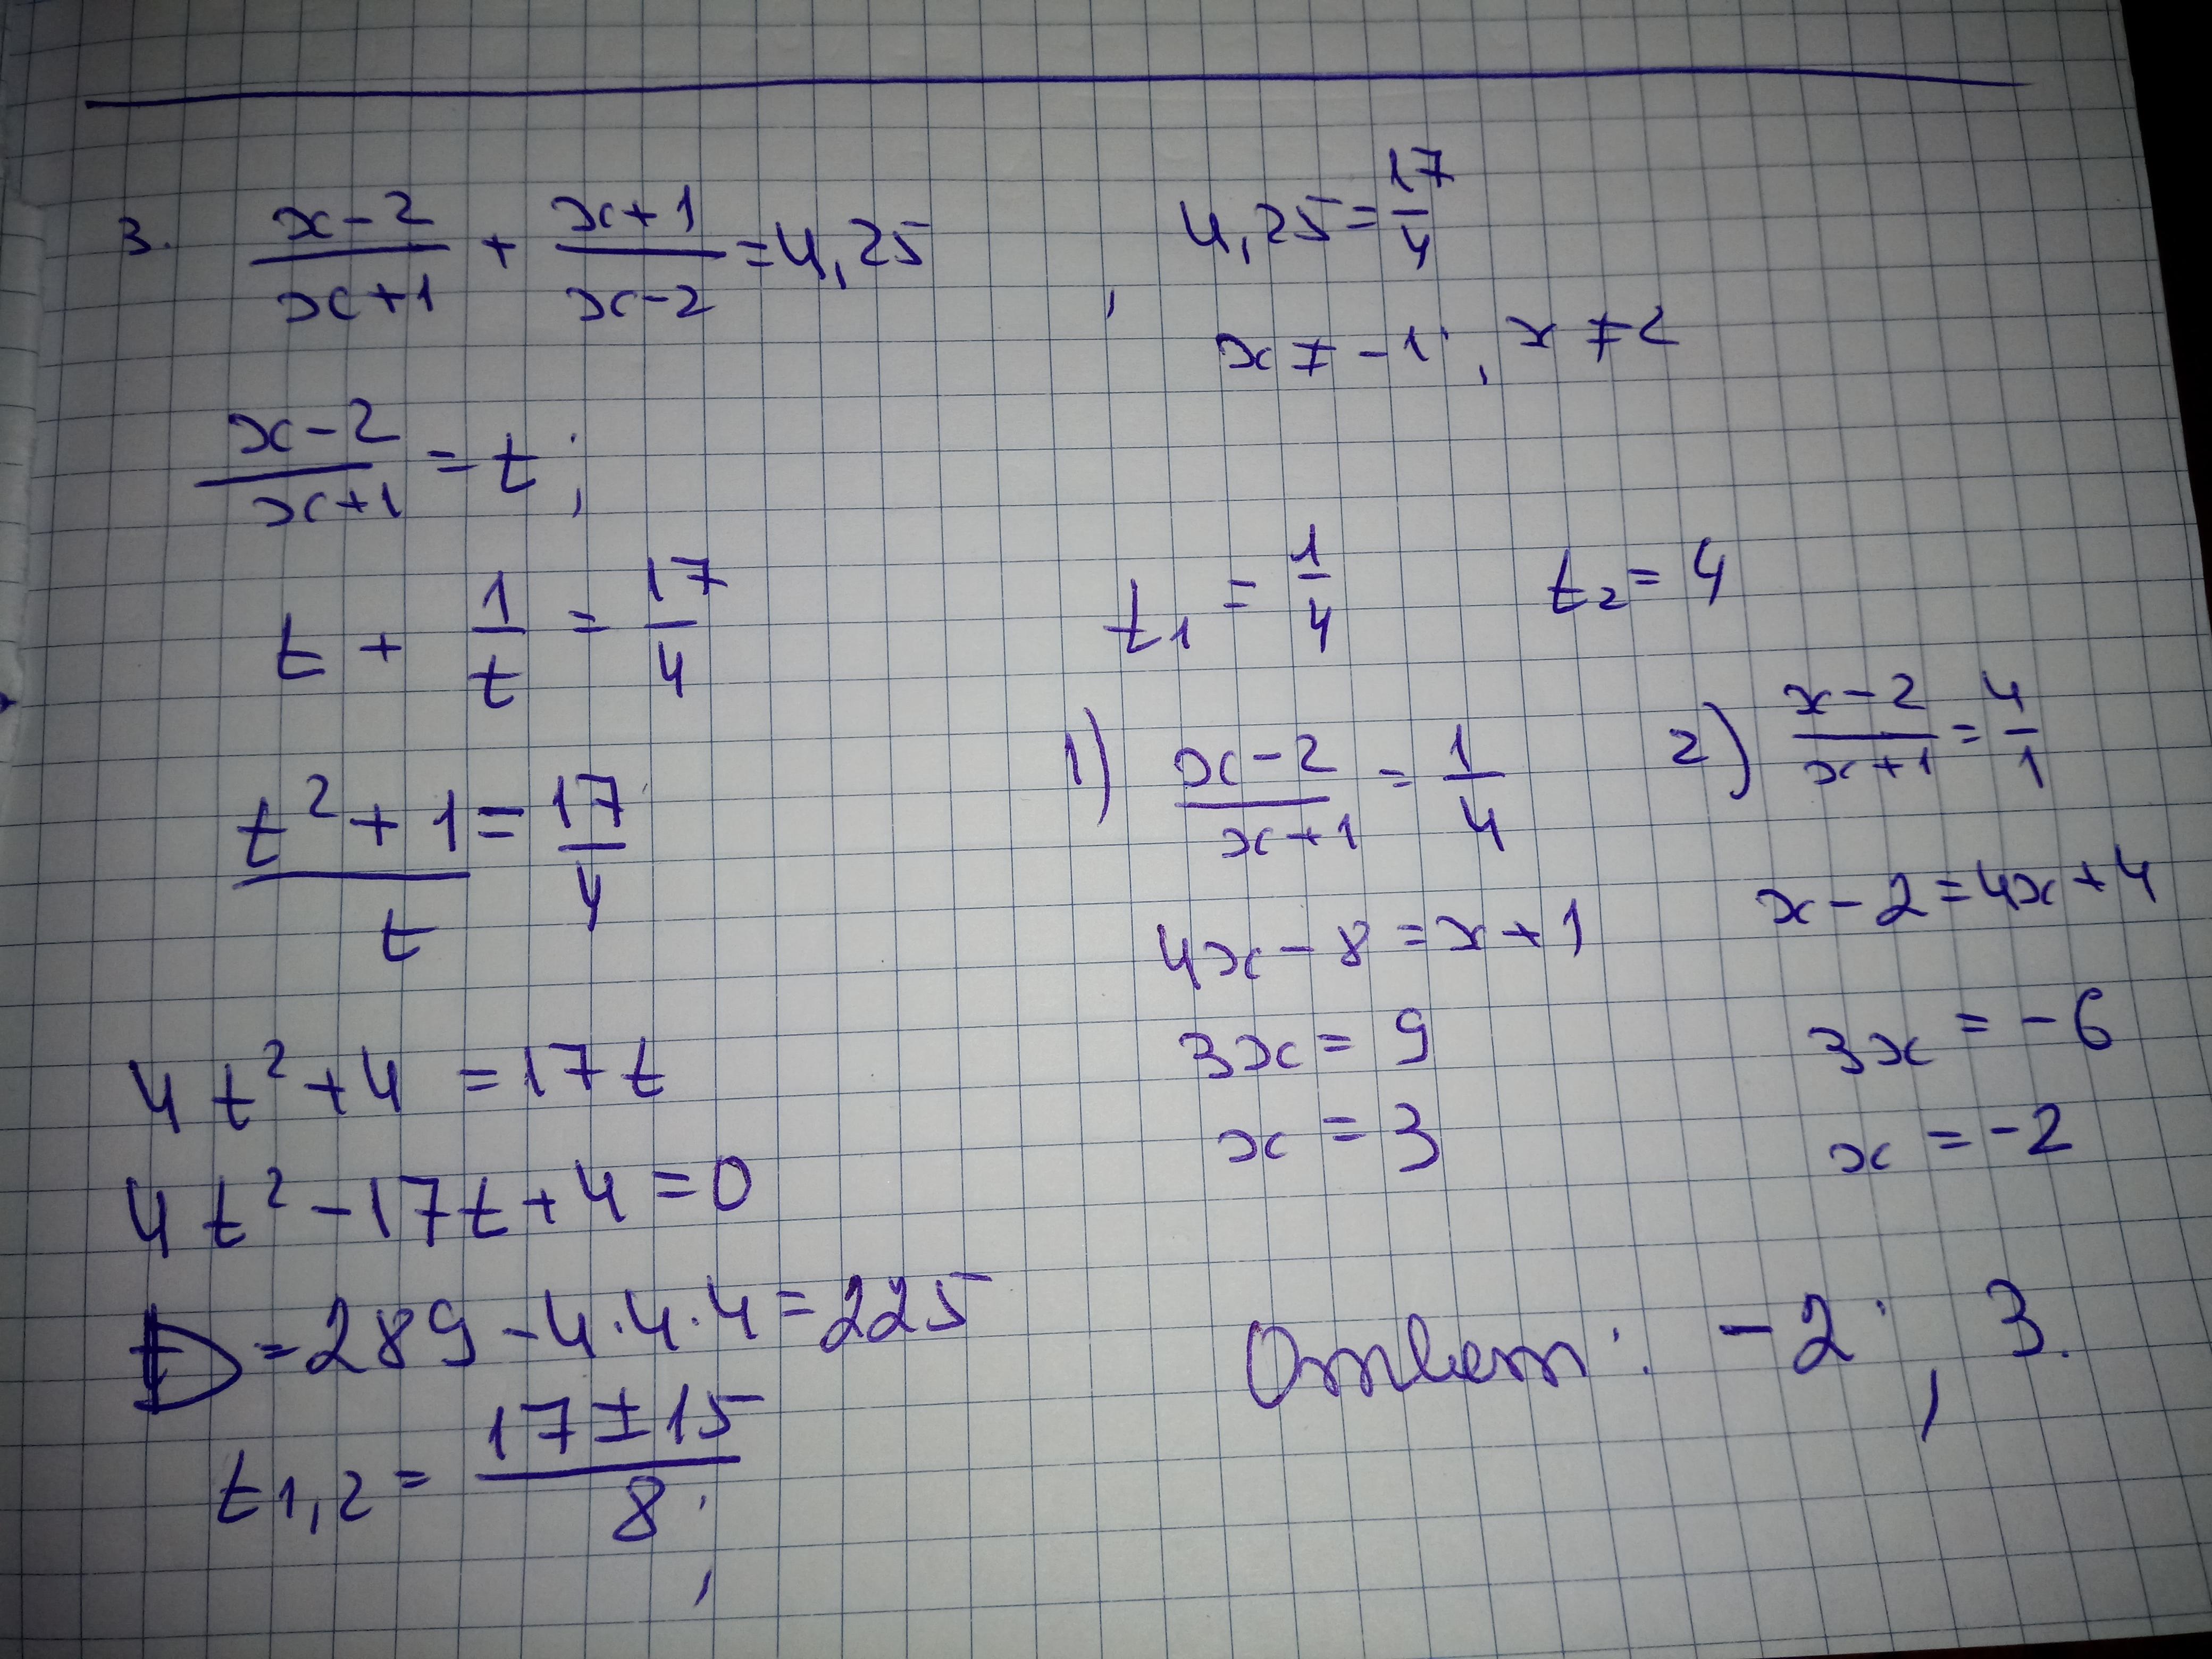 3. (x-2)/(x+1) + (x+1)/(x-2) = 4,25 ;
(x-2)/(x+1) = t ;
t + 1/t = 17/4
(t² + 1)/t = 17/4
4t² + 4 = 17t
4t² - 17t + 4 = 0
D = 289 - 4·4·4 = 225
t1,2 = (17 ± 15)/8 ;
4,25 = 17/4
x ≠ -1 ; x ≠ 2
t1 = 1/4 t2 = 4
1) (x-2)/(x+1) = 1/4
4x - 8 = x + 1
3x = 9
x = 3
2) (x-2)/(x+1) = 4/1
x - 2 = 4x + 4
3x = -6
x = -2
Ответ: -2 ; 3.